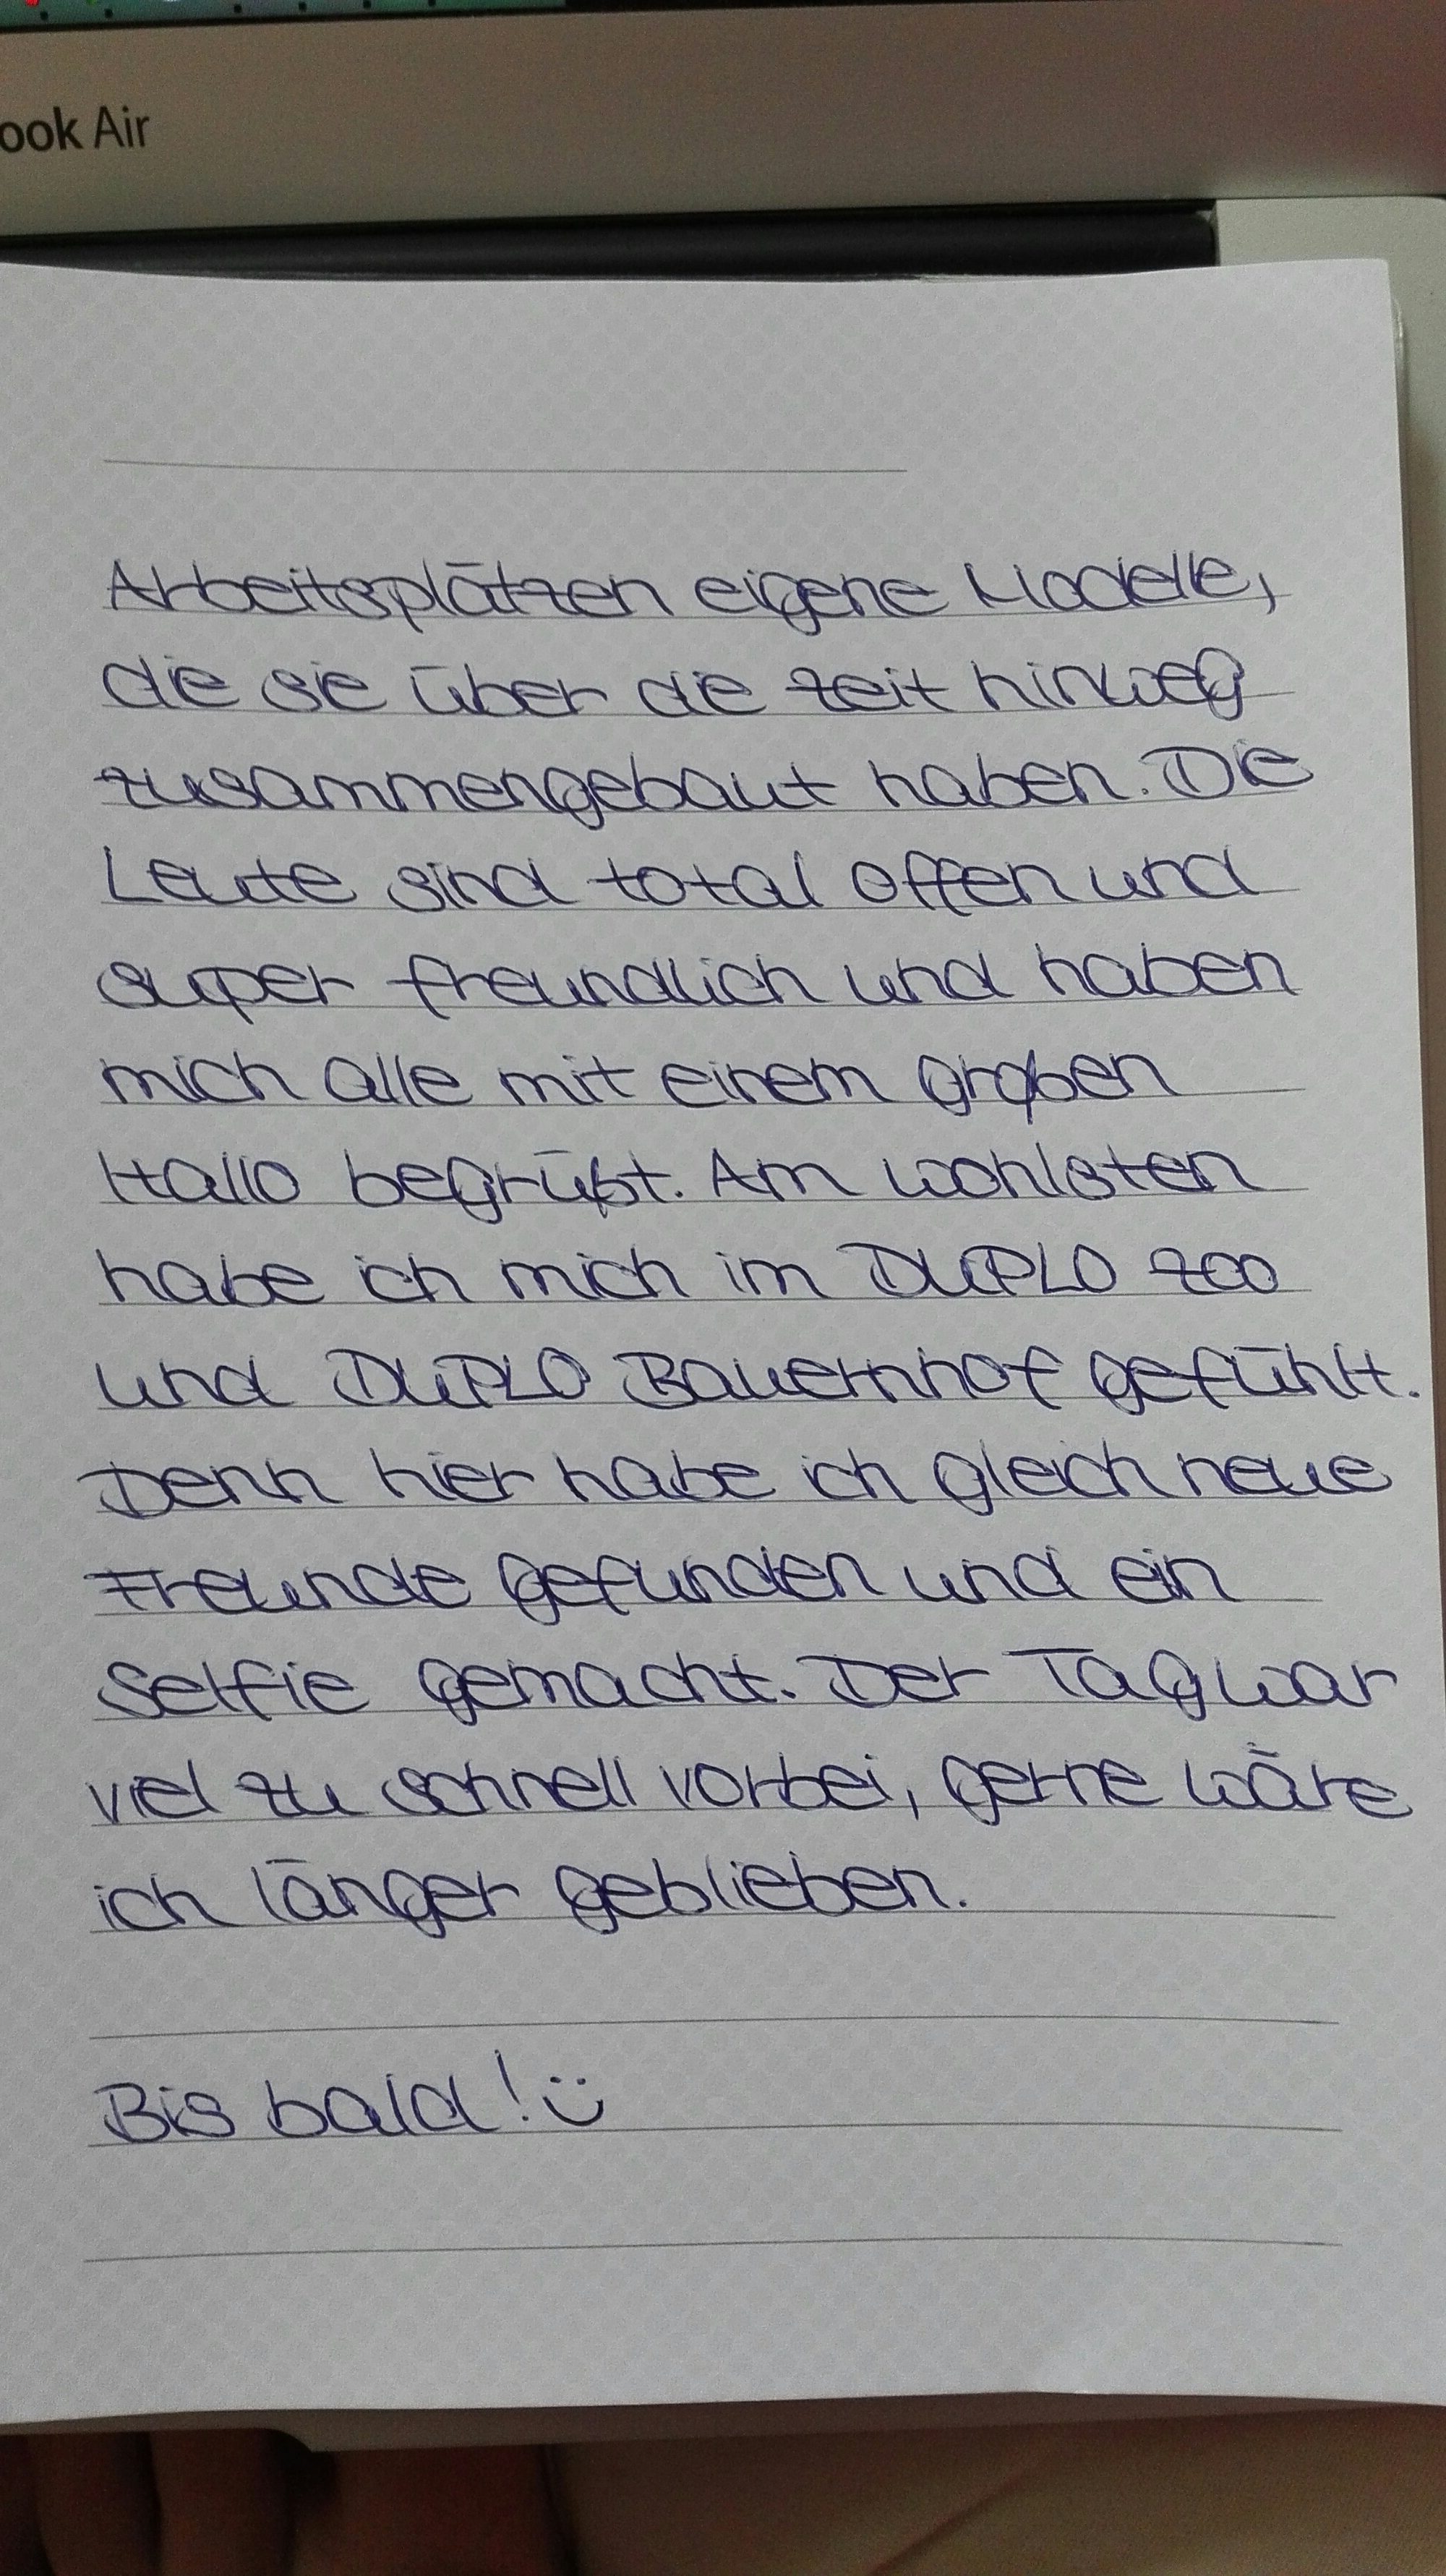 ook Air
Arbeitsplätzen eigene Modelle,
die sie über die Zeit hinweg
zusammengebaut haben. Die
Leute sind total offen und
super freundlich und haben
mich alle mit einem großen
Hallo begrüßt. Am wohlsten
habe ich mich im DUPLO ZOO
und DUPLO Bauernhof gefühlt.
Denn hier habe ich gleich neue
Freunde gefunden und ein
Selfie gemacht. Der Tag war
viel zu schnell vorbei, gerne wäre
ich länger geblieben.
Bis bald! :)